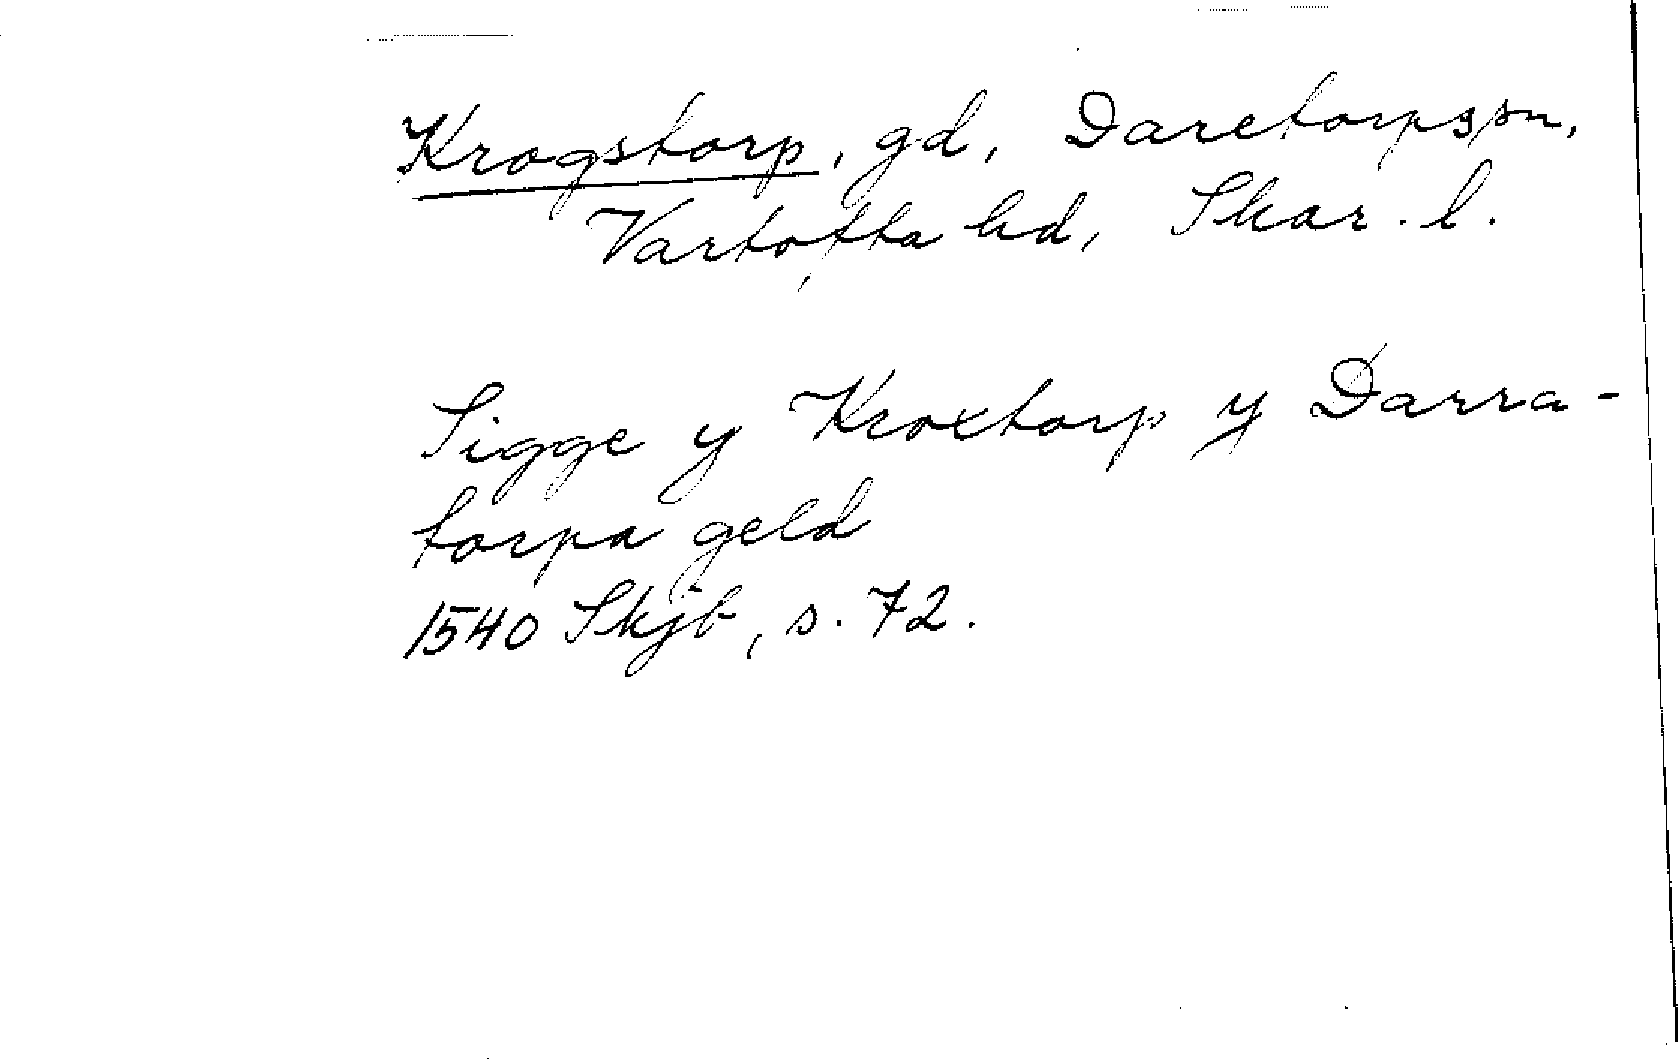 Krogstorp, gd, Daretorpssn,
Vartofta hd, Skar. l.
Sigge y Kroxtorp y Darra-
torpa geld
1540 Skjb, s. 72.